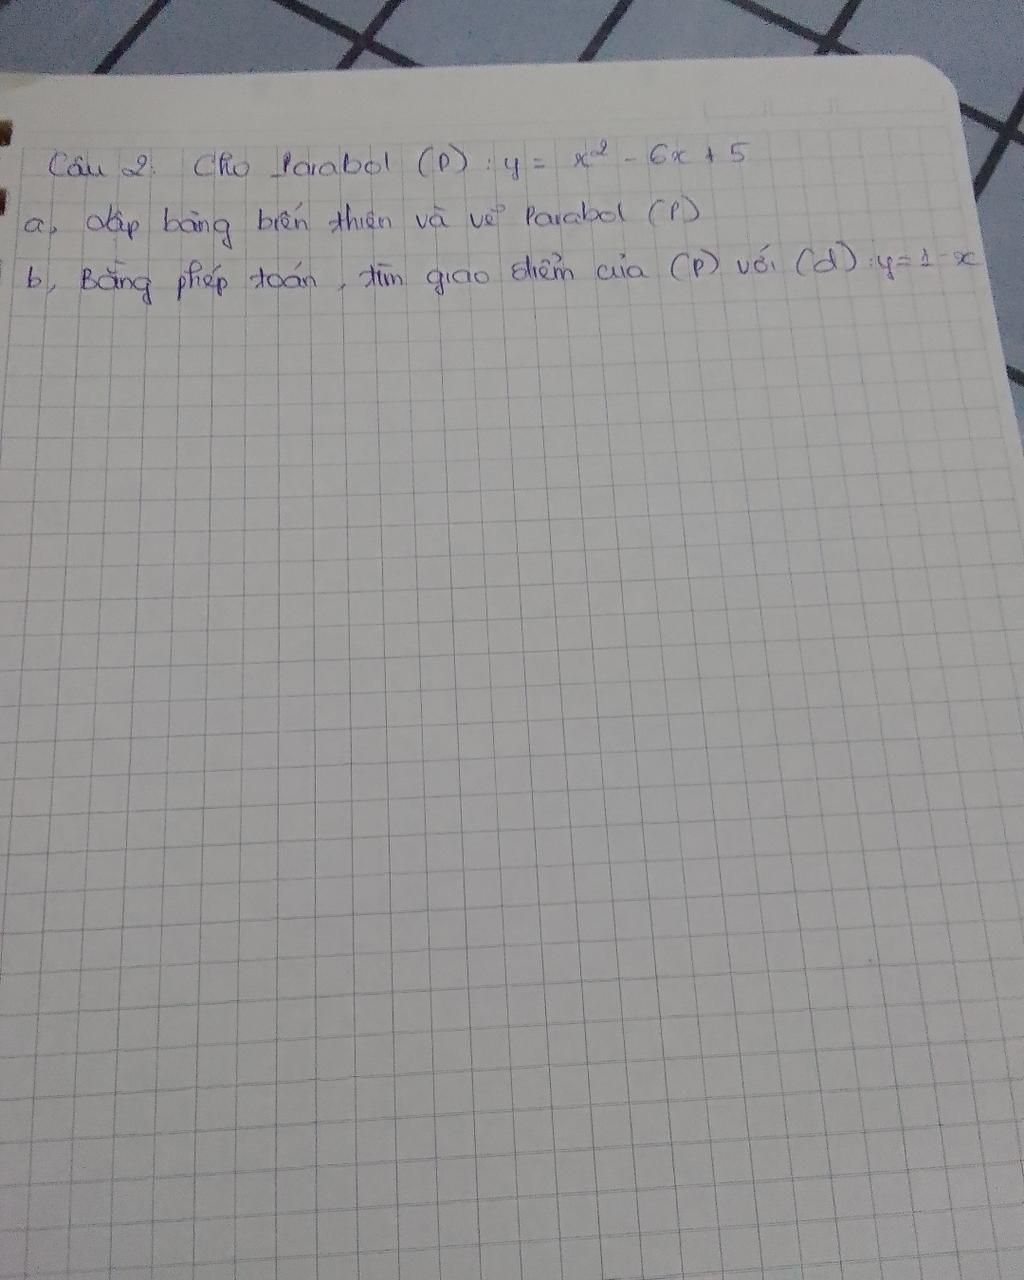 Câu 2: Cho Parabol (P): y = x² - 6x + 5
a, Lập bảng biến thiên và vẽ Parabol (P)
b, Bằng phép toán, tìm giao điểm của (P) với (d): y = 1 - x